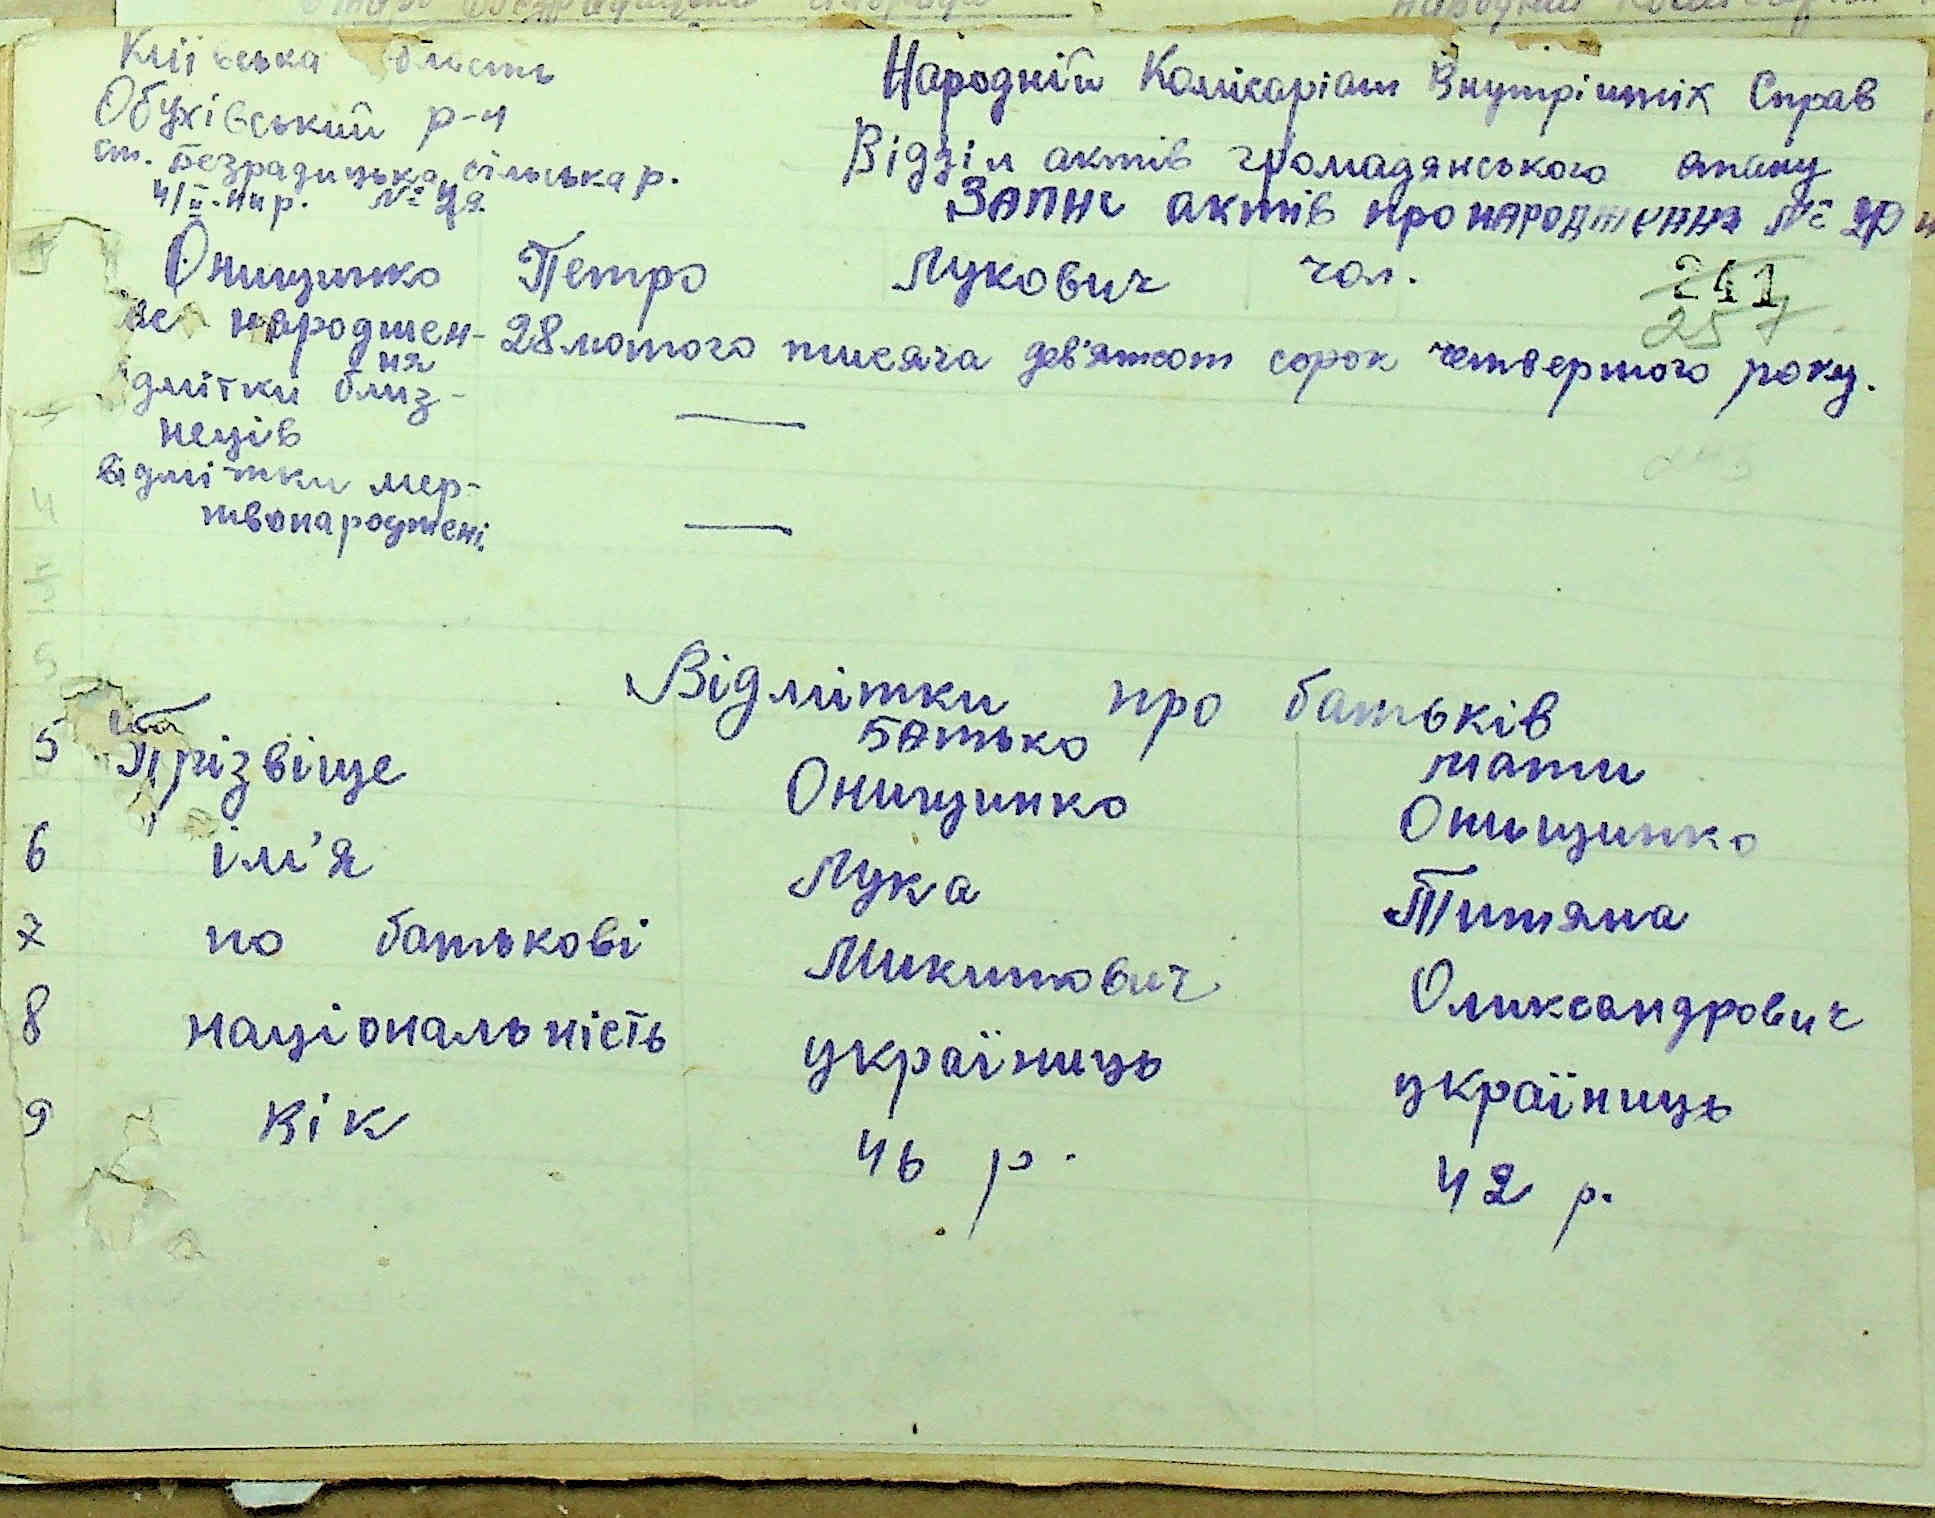 Київська область
Обухівський р-н
ст. Безрадицька сільська р.
4/ІІ. 44 р. № 29
Народній Комісаріат Внутрішніх Справ
Відділ актів громадянського стану
ЗАПИС актів про народження № 29
Онищинко Петро Лукович чол.
241
257
час народжен-ня 28 лютого тисяча дев'ятсот сорок четвертого року.
відмітки близ-
неців —
відмітки мер-
твонароджені —
Відмітки про батьків
батько мати
5 Прізвіще Онищинко Онищинко
6 ім'я Лука Титяна
7 по батькові Микитович Оликсандрович
8 національність україниць україниць
9 вік 46 р. 42 р.